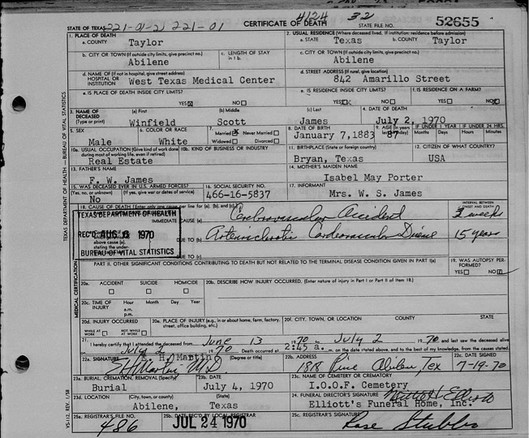 STATE OF TEXAS 221-01-2) 221-01 CERTIFICATE OF DEATH 4124 32 STATE FILE NO. 52655
1. PLACE OF DEATH
a. COUNTY
Taylor
2. USUAL RESIDENCE (Where deceased lived. If institution: residence before admission)
a. STATE Texas b. COUNTY Taylor
b. CITY OR TOWN (If outside city limits, give precinct no.)
Abilene
c. LENGTH OF STAY
in 1 b.
c. CITY OR TOWN (If outside city limits, give precinct no.)
Abilene
d. NAME OF (If not in hospital, give street address)
HOSPITAL OR
INSTITUTION West Texas Medical Center
d. STREET ADDRESS (If rural, give location)
842 Amarillo Street
e. IS PLACE OF DEATH INSIDE CITY LIMITS?
YES NO
e. IS RESIDENCE INSIDE CITY LIMITS?
YES NO
f. IS RESIDENCE ON A FARM?
YES NO
3. NAME OF DECEASED (Type or print)
(a) First
Winfield
(b) Middle
Scott
(c) Last
James
4. DATE OF DEATH
July 2, 1970
5. SEX
Male
6. COLOR OR RACE
White
7. Married Never Married
Widowed Divorced
8. DATE OF BIRTH
January 7, 1883
9. AGE
87
IF UNDER 1 YEAR
Months Days
IF UNDER 24 HRS.
Hours Minutes
10a. USUAL OCCUPATION (Give kind of work done during most of working life, even if retired)
Real Estate
10b. KIND OF BUSINESS OR INDUSTRY
11. BIRTHPLACE (State or foreign country)
Bryan, Texas
12. CITIZEN OF WHAT COUNTRY?
USA
13. FATHER'S NAME
F. W. James
14. MOTHER'S MAIDEN NAME
Isabel May Porter
15. WAS DECEASED EVER IN U.S. ARMED FORCES?
(Yes, no, or unknown) (If yes, give war or dates of service)
No
16. SOCIAL SECURITY NO.
466-16-5837
17. INFORMANT
Mrs. W. S. James
18. CAUSE OF DEATH
INTERVAL BETWEEN
IMMEDIATE CAUSE (a) Cerebrovascular Accident 2 weeks
DUE TO (b) Arteriosclerotic Cardiovascular Disease 15 years
DUE TO (c)
TEXAS DEPARTMENT OF HEALTH
REC'D AUG 6 1970
BUREAU OF VITAL STATISTICS
PART II. OTHER SIGNIFICANT CONDITIONS CONTRIBUTING TO DEATH BUT NOT RELATED TO THE TERMINAL DISEASE CONDITION GIVEN IN PART I(a)
19. WAS AUTOPSY PERFORMED?
YES NO
20a. ACCIDENT SUICIDE HOMICIDE
20b. DESCRIBE HOW INJURY OCCURRED. (Enter nature of injury in Part I or Part II of item 18.)
20c. TIME OF INJURY
Hour Month Day Year
a.m.
p.m.
20d. INJURY OCCURRED
WHILE AT WORK NOT WHILE AT WORK
20e. PLACE OF INJURY (e.g., in or about home, farm, factory, street, office building, etc.)
20f. CITY, TOWN, OR LOCATION COUNTY STATE
21. I hereby certify that I attended the deceased from June 13 1970 to July 2 1970 and last saw the deceased alive
on July 2 1970. Death occurred at 2:45 a.m. on the date stated above, and to the best of my knowledge, from the causes stated.
22a. SIGNATURE (Degree or title)
22b. ADDRESS
1818 Pine Abilene Tex
22c. DATE SIGNED
7-19-70
23a. BURIAL, CREMATION, REMOVAL (Specify)
Burial
23b. DATE
July 4, 1970
23c. NAME OF CEMETERY OR CREMATORY
I.O.O.F. Cemetery
23d. LOCATION (City, town, or county) (State)
Abilene, Texas
24. FUNERAL DIRECTOR'S SIGNATURE
Elliott's Funeral Home, Inc.
25a. REGISTRAR'S FILE NO.
486
25b. DATE REC'D BY LOCAL REGISTRAR
JUL 24 1970
25c. REGISTRAR'S SIGNATURE
Rose Stubbs
TEXAS DEPARTMENT OF HEALTH — BUREAU OF VITAL STATISTICS
MEDICAL CERTIFICATION